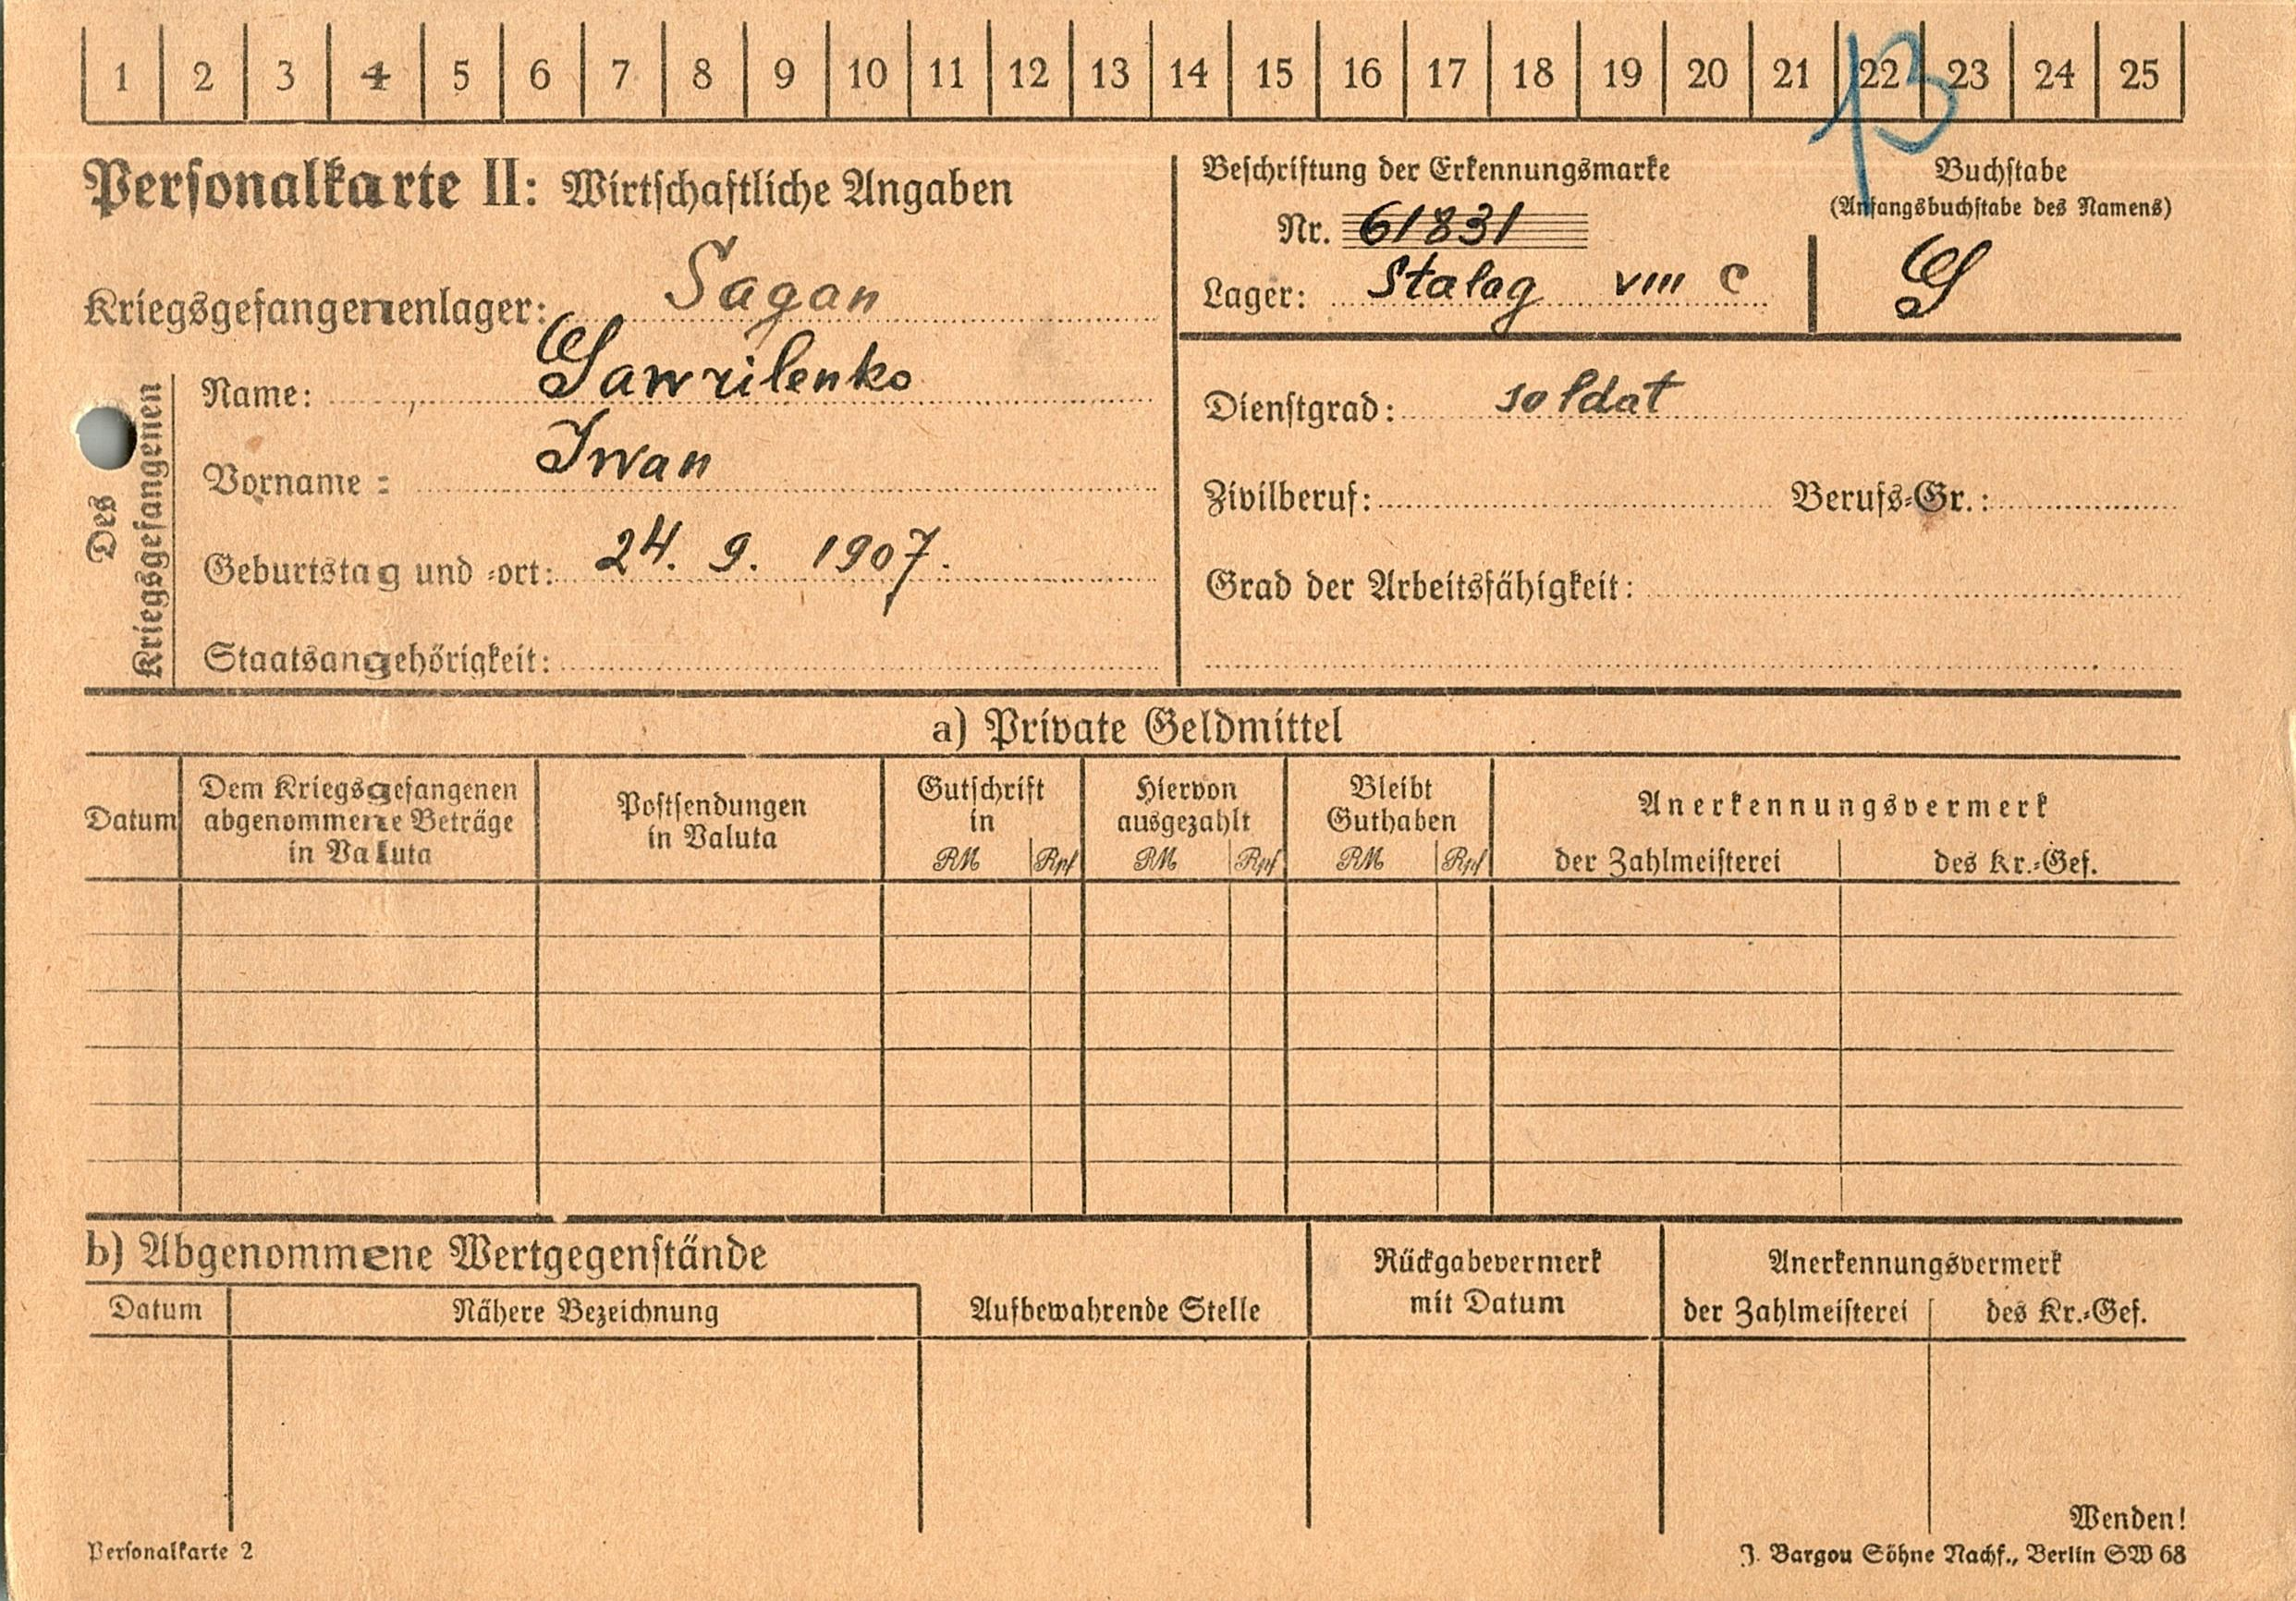 1 2 3 4 5 6 7 8 9 10 11 12 13 14 15 16 17 18 19 20 21 22 23 24 25
13
Personalkarte II: Wirtschaftliche Angaben
Kriegsgefangenenlager: Sagan
Des Kriegsgefangenen
Name: Gawrilenko
Vorname: Iwan
Geburtstag und -ort: 24. 9. 1907.
Staatsangehörigkeit:
Beschriftung der Erkennungsmarke
Nr. 61831
Lager: Stalag VIII C
Buchstabe
(Anfangsbuchstabe des Namens)
G
Dienstgrad: soldat
Zivilberuf: Berufs-Gr.:
Grad der Arbeitsfähigkeit:
a) Private Geldmittel
Datum
Dem Kriegsgefangenen
abgenommene Beträge
in Valuta
Postsendungen
in Valuta
Gutschrift
in
RM Rpf
Hiervon
ausgezahlt
RM Rpf
Bleibt
Guthaben
RM Rpf
Anerkennungsvermerk
der Zahlmeisterei des Kr.-Gef.
b) Abgenommene Wertgegenstände
Datum Nähere Bezeichnung
Aufbewahrende Stelle
Rückgabevermerk
mit Datum
Anerkennungsvermerk
der Zahlmeisterei des Kr.-Gef.
Wenden!
Personalkarte 2
J. Bargou Söhne Nachf., Berlin SW 68